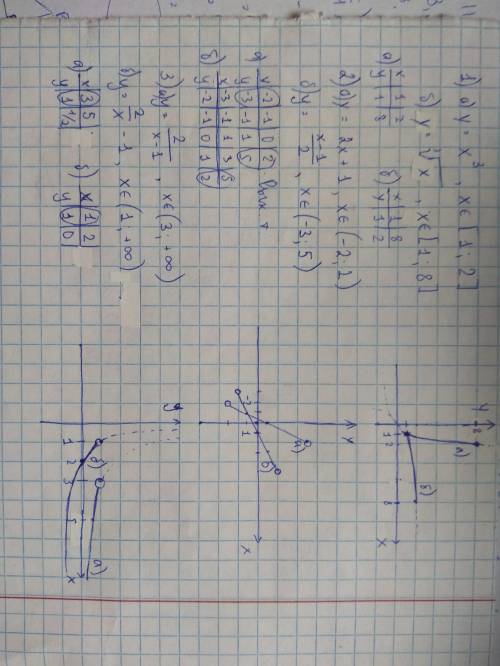 1) а) y = x³, x ∈ [1; 2]
б) y = ∛x, x ∈ [1; 8]
а) x | 1 | 2
y | 1 | 8
б) x | 1 | 8
y | 1 | 2
y
8
а)
б)
1 2 8
x
2) а) y = 2x+1, x ∈ (-2; 2)
б) y = x-1/2, x ∈ (-3; 5)
а) x | -2 | -1 | 0 | 2
y | -3 | -1 | 1 | 5
б) x | -3 | -1 | 1 | 3 | 5
y | -2 | -1 | 0 | 1 | 2
y
а)
б)
-2
1
x
3) а) y = 2/x-1, x ∈ (3, +∞)
б) y = 2/x - 1, x ∈ (1, +∞)
а) x | 3 | 5
y | 1 | 1/2
б) x | 1 | 2
y | 1 | 0
y
б)
а)
1 2 3 5
x